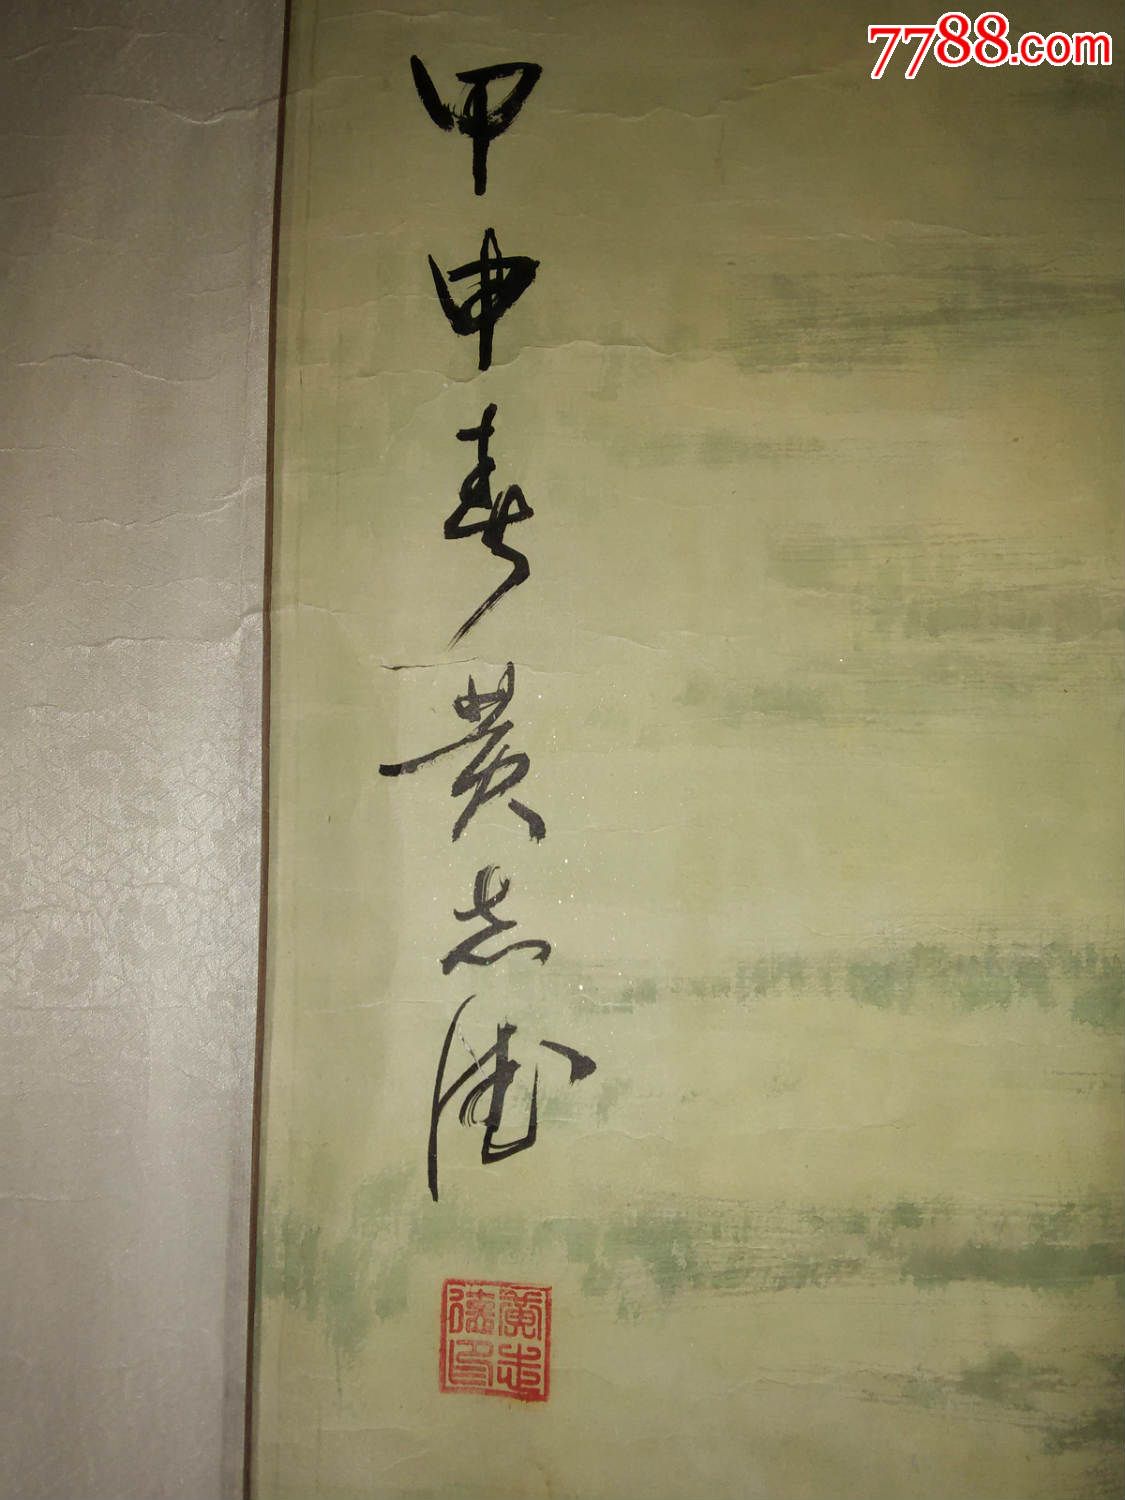 7788.com
甲申春黄志德
黄志
德印